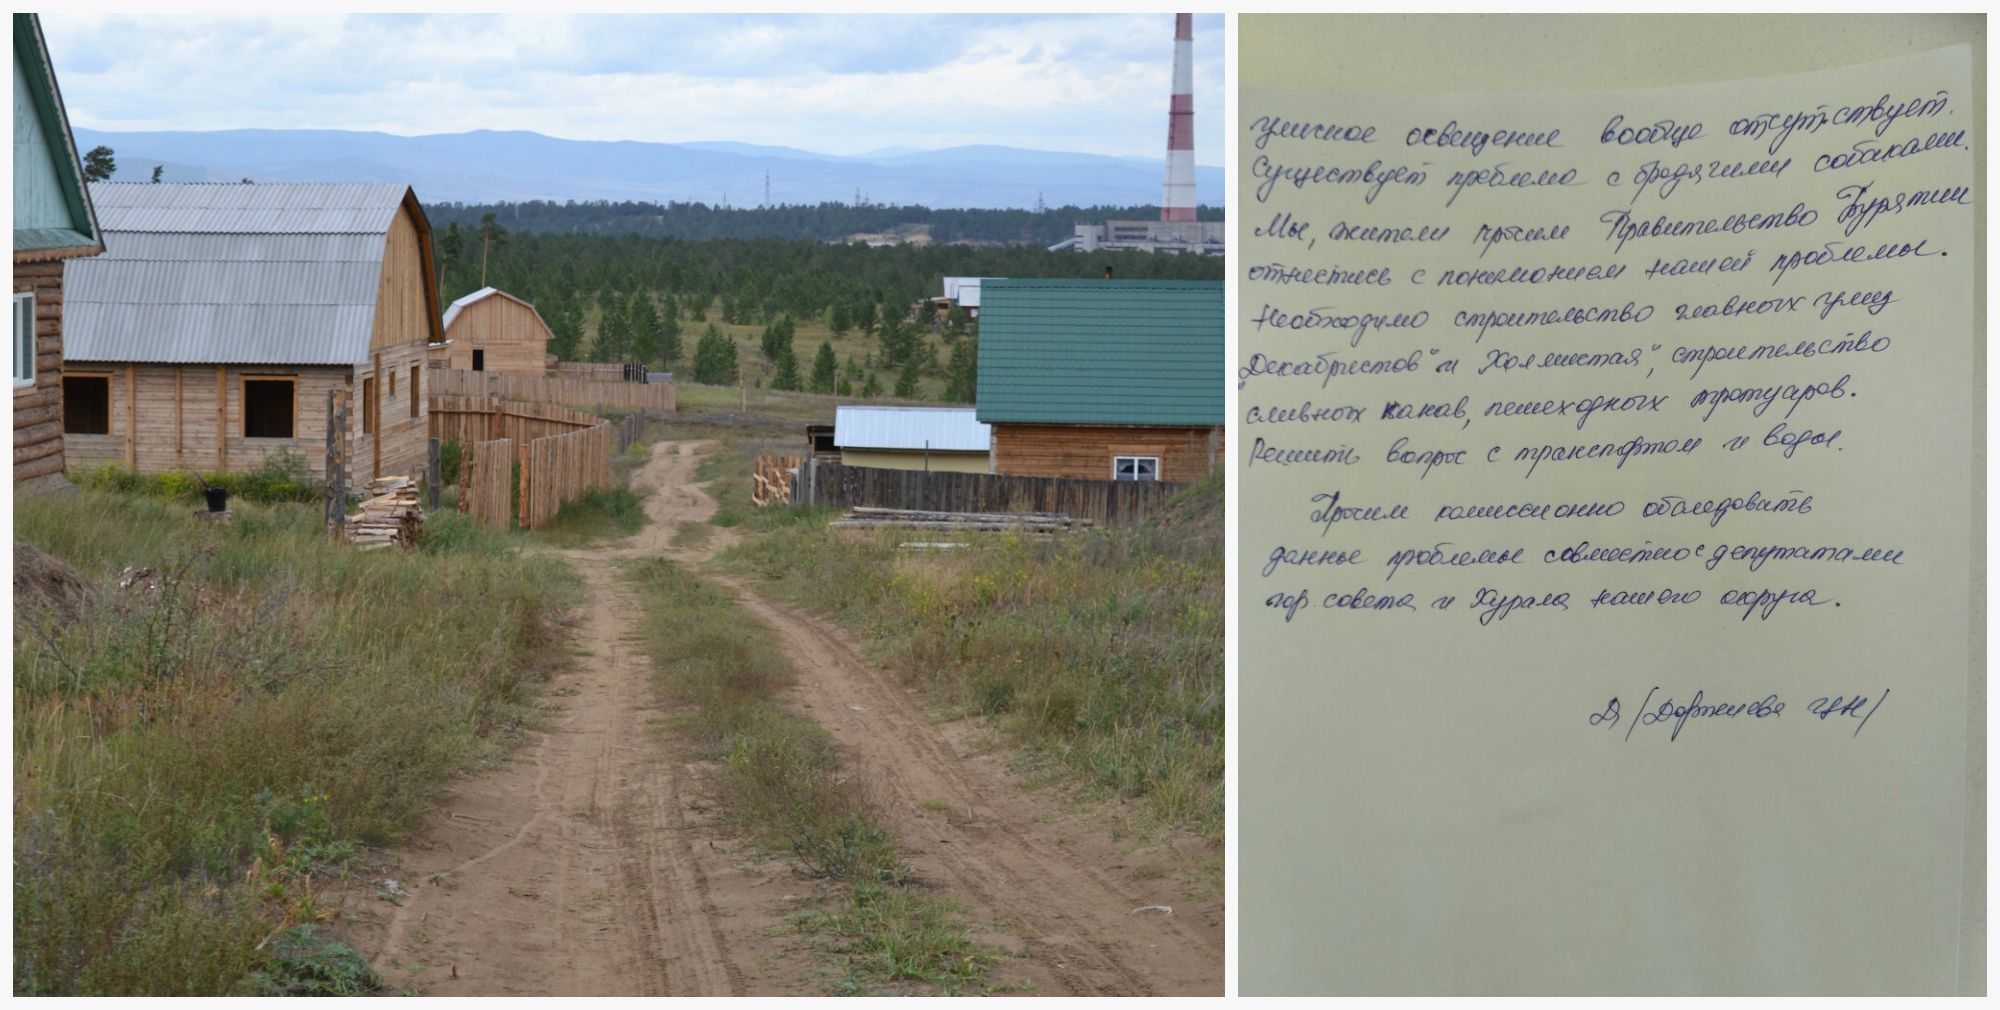 уличное освещение вообще отсутствует.
Существует проблема с бродячими собаками.
Мы, жители просим Правительство Бурятии
отнестись с пониманием нашей проблемы.
Необходимо строительство главных улиц
„Декабристов" и Холмистая", строительство
сливных канав, пешеходных тротуаров.
Решить вопрос с транспортом и воды.
Просим комиссионно обследовать
данные проблемы совместно с депутатами
гор. совета и Хурала нашего округа.
Д /Доржиева ЦН/